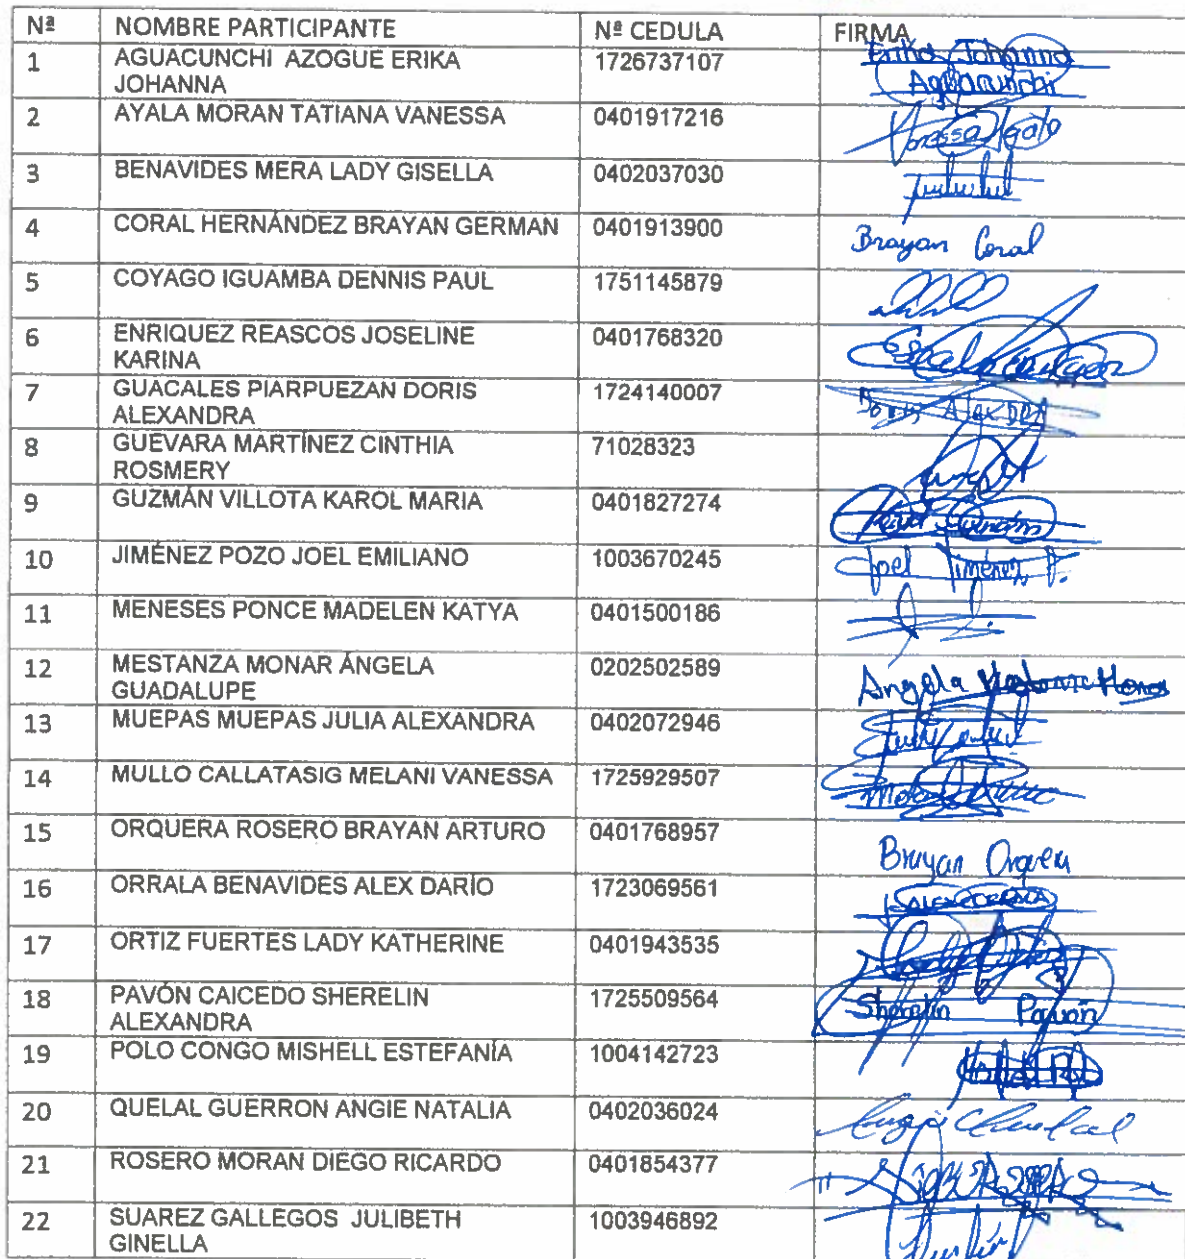 Nª NOMBRE PARTICIPANTE Nª CEDULA FIRMA
1 AGUACUNCHI AZOGUE ERIKA 1726737107 Erika Johanna
JOHANNA Aguacunchi
2 AYALA MORAN TATIANA VANESSA 0401917216
3 BENAVIDES MERA LADY GISELLA 0402037030
4 CORAL HERNÁNDEZ BRAYAN GERMAN 0401913900 Brayan Coral
5 COYAGO IGUAMBA DENNIS PAUL 1751145879
6 ENRIQUEZ REASCOS JOSELINE 0401768320
KARINA
7 GUACALES PIARPUEZAN DORIS 1724140007
ALEXANDRA
8 GUEVARA MARTÍNEZ CINTHIA 71028323
ROSMERY
9 GUZMÁN VILLOTA KAROL MARIA 0401827274
10 JIMÉNEZ POZO JOEL EMILIANO 1003670245 Joel Jiménez P.
11 MENESES PONCE MADELEN KATYA 0401500186
12 MESTANZA MONAR ÁNGELA 0202502589 Angela
GUADALUPE
13 MUEPAS MUEPAS JULIA ALEXANDRA 0402072946
14 MULLO CALLATASIG MELANI VANESSA 1725929507
15 ORQUERA ROSERO BRAYAN ARTURO 0401768957 Brayan Orquera
16 ORRALA BENAVIDES ALEX DARÍO 1723069561
17 ORTIZ FUERTES LADY KATHERINE 0401943535
18 PAVÓN CAICEDO SHERELIN 1725509564 Sherelin Pavón
ALEXANDRA
19 POLO CONGO MISHELL ESTEFANÍA 1004142723
20 QUELAL GUERRON ANGIE NATALIA 0402036024
21 ROSERO MORAN DIEGO RICARDO 0401854377
22 SUAREZ GALLEGOS JULIBETH 1003946892
GINELLA